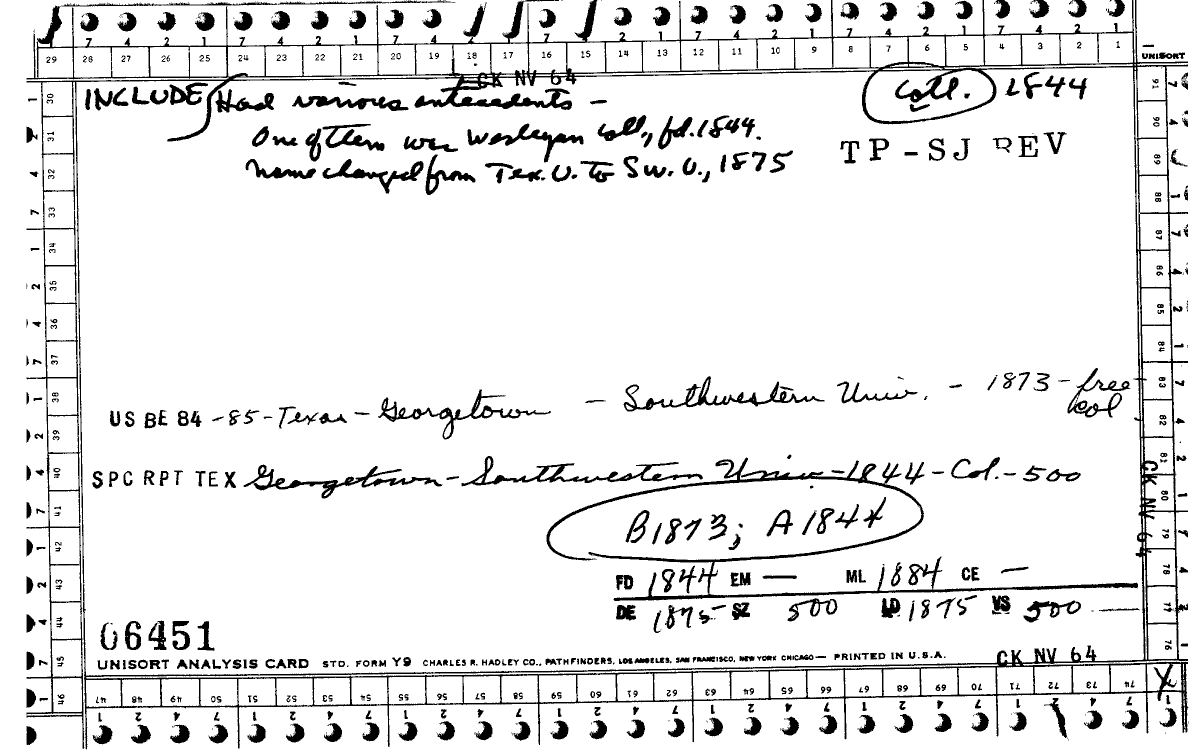 7 4 2 1 7 4 2 1 7 4 2 1 7 4 2 1 7 4 2 1 7 4 2 1
29 28 27 26 25 24 23 22 21 20 19 18 17 16 15 14 13 12 11 10 9 8 7 6 5 4 3 2 1 UNISORT
CK NV 64
INCLUDE Had various antecedents – Coll. 1844
One of them was Wesleyan Coll., fd. 1844.
TP-SJ REV
Name changed from Tex. U. to Sw. U., 1875
US BE 84-85-Texas-Georgetown - Southwestern Univ. - 1873-free
col
SPC RPT TEX Georgetown-Southwestern Univ-1844-Col.-500
B1873; A1844
FD 1844 EM — ML 1884 CE —
DE 1875 SZ 500 LD 1875 VS 500 —
06451
UNISORT ANALYSIS CARD STD. FORM Y9 CHARLES R. HADLEY CO., PATHFINDERS, LOS ANGELES, SAN FRANCISCO, NEW YORK CHICAGO— PRINTED IN U.S.A.
CK NV 64
CK NV 64
30 31 32 33 34 35 36 37 38 39 40 41 42 43 44 45 46
47 48 49 50 51 52 53 54 55 56 57 58 59 60 61 62 63 64 65 66 67 68 69 70 71 72 73 74
91 90 89 88 87 86 85 84 83 82 81 80 79 78 77 76